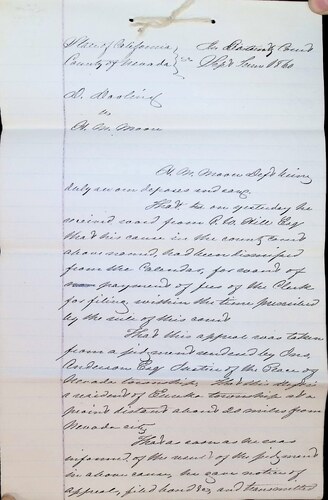 State of California } In County Court
County of Nevada } ss Sept Term 1860
D. Darling
vs
A. W. Moore
A. W. Moore Deft being
duly sworn deposes and says
That he on yesterday he
received word from P. W. Hill Esq
that his cause in the county court
above named, had been dismissed
from the Calendar, for want of
payment of fees of the Clerk
for filing within the time prescribed
by the rule of this court
That this appeal was taken
from a judgment rendered by
Anderson Esq Justice of the Peace of
Nevada township. That this deft is
a resident of Eureka township at a
point distant about 20 miles from
Nevada city.
That as soon as he was
informed of the result of the judgment
in above cause, he gave notice of
appeal, filed bond by, and transmitted